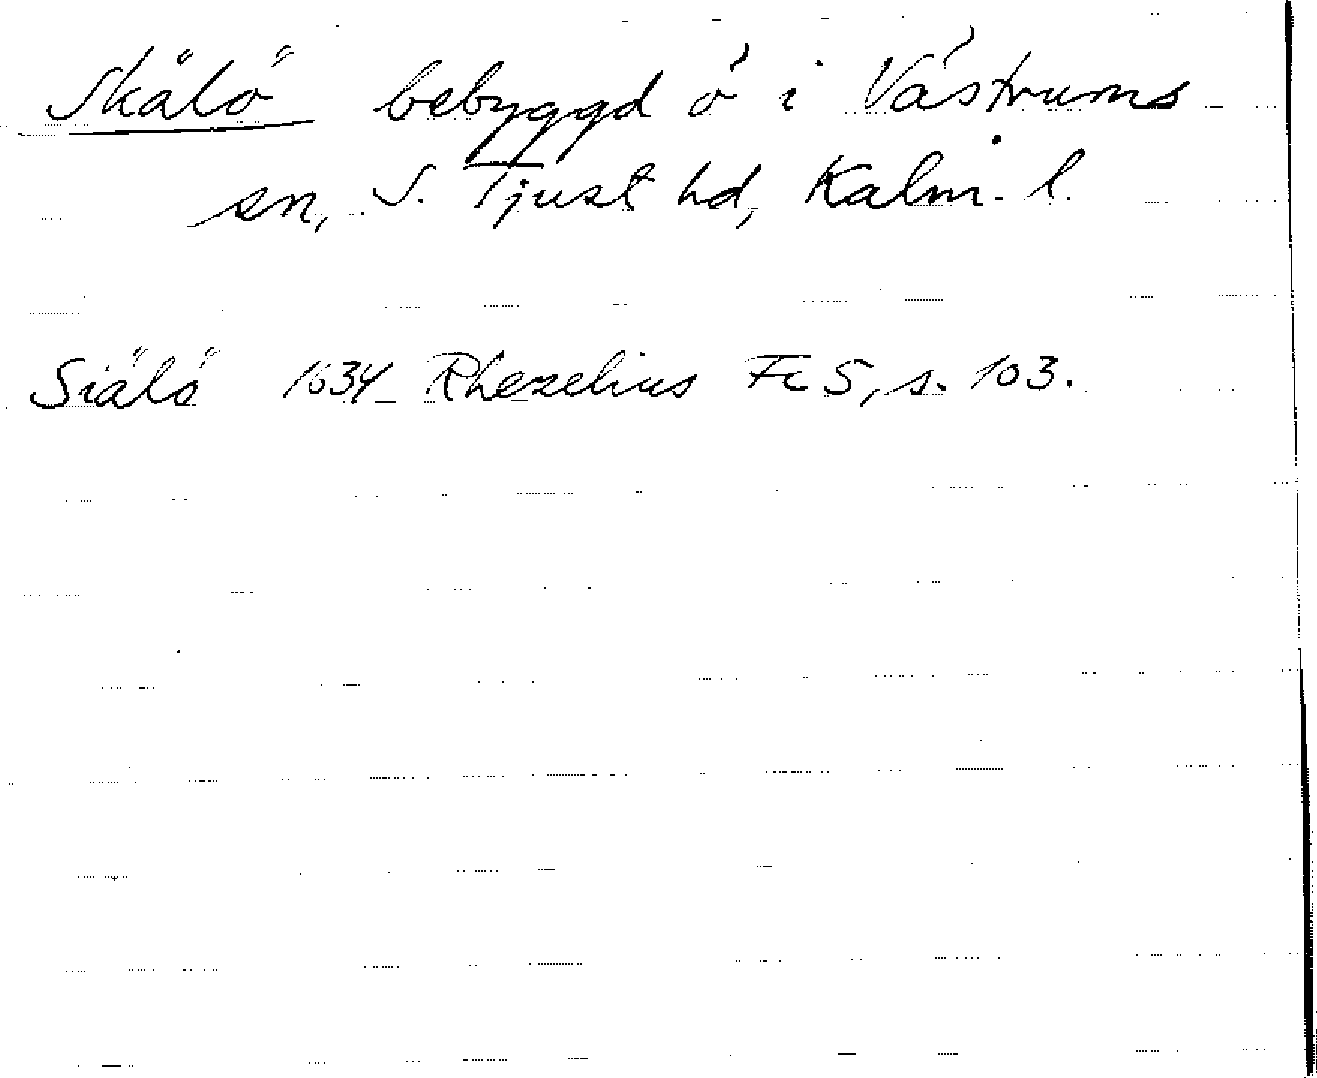 Skälö bebyggd ö i Västrums
sn, S. Tjust hd, Kalm. l.
Siälö 1634 Rhezelius Fc 5, s. 103.